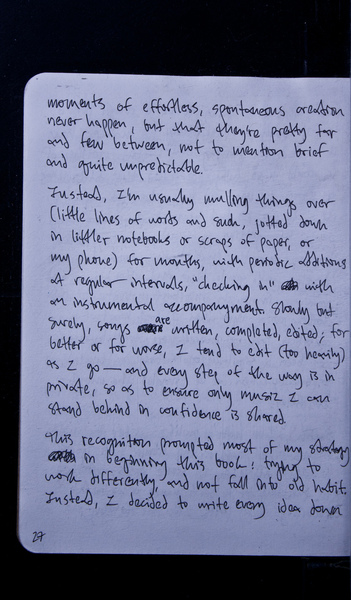 moments of effortless, spontaneous creation
never happen, but that they're pretty far
and few between, not to mention brief
and quite unpredictable.
Instead, I'm usually mulling things over
(little lines of words and such, jotted down
in littler notebooks or scraps of paper, or
my phone) for months, with periodic additions
at regular intervals, "checking in" with
an instrumental accompanyment. Slowly but
surely, songs are written, completed, edited; for
better or for worse, I tend to edit (too heavily)
as I go — and every step of the way is in
private, so as to ensure only music I can
stand behind in confidence is shared.
This recognition prompted most of my strategy
in beginning this book: trying to
work differently and not fall into old habit.
Instead, I decided to write every idea down
27